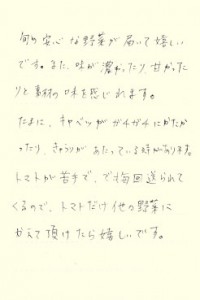 旬の安心な野菜が届いて嬉しい
です。また、味が濃かったり、甘かった
りと素材の味を感じれます。
たまに、キャベツがガチガチにかたか
ったり、きゅうりがあたっている時があります。
トマトが苦手で、で毎回送られて
くるので、トマトだけ他の野菜に
かえて頂けたら嬉しいです。